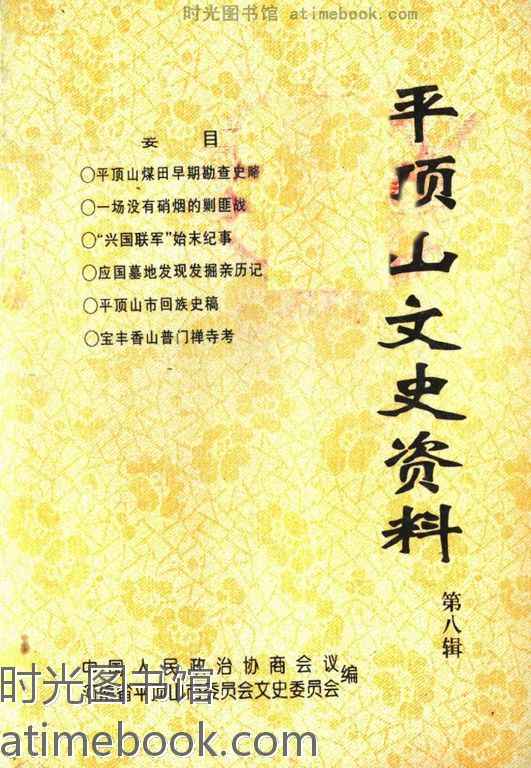 时光图书馆 atimebook.com
平顶山文史资料
第八辑
要目
○平顶山煤田早期勘查史略
○一场没有硝烟的剿匪战
○“兴国联军”始末纪事
○应国墓地发现发掘亲历记
○平顶山市回族史稿
○宝丰香山普门禅寺考
中国人民政治协商会议
省平顶山市委员会文史委员会
编
时光图书馆
atimebook.com